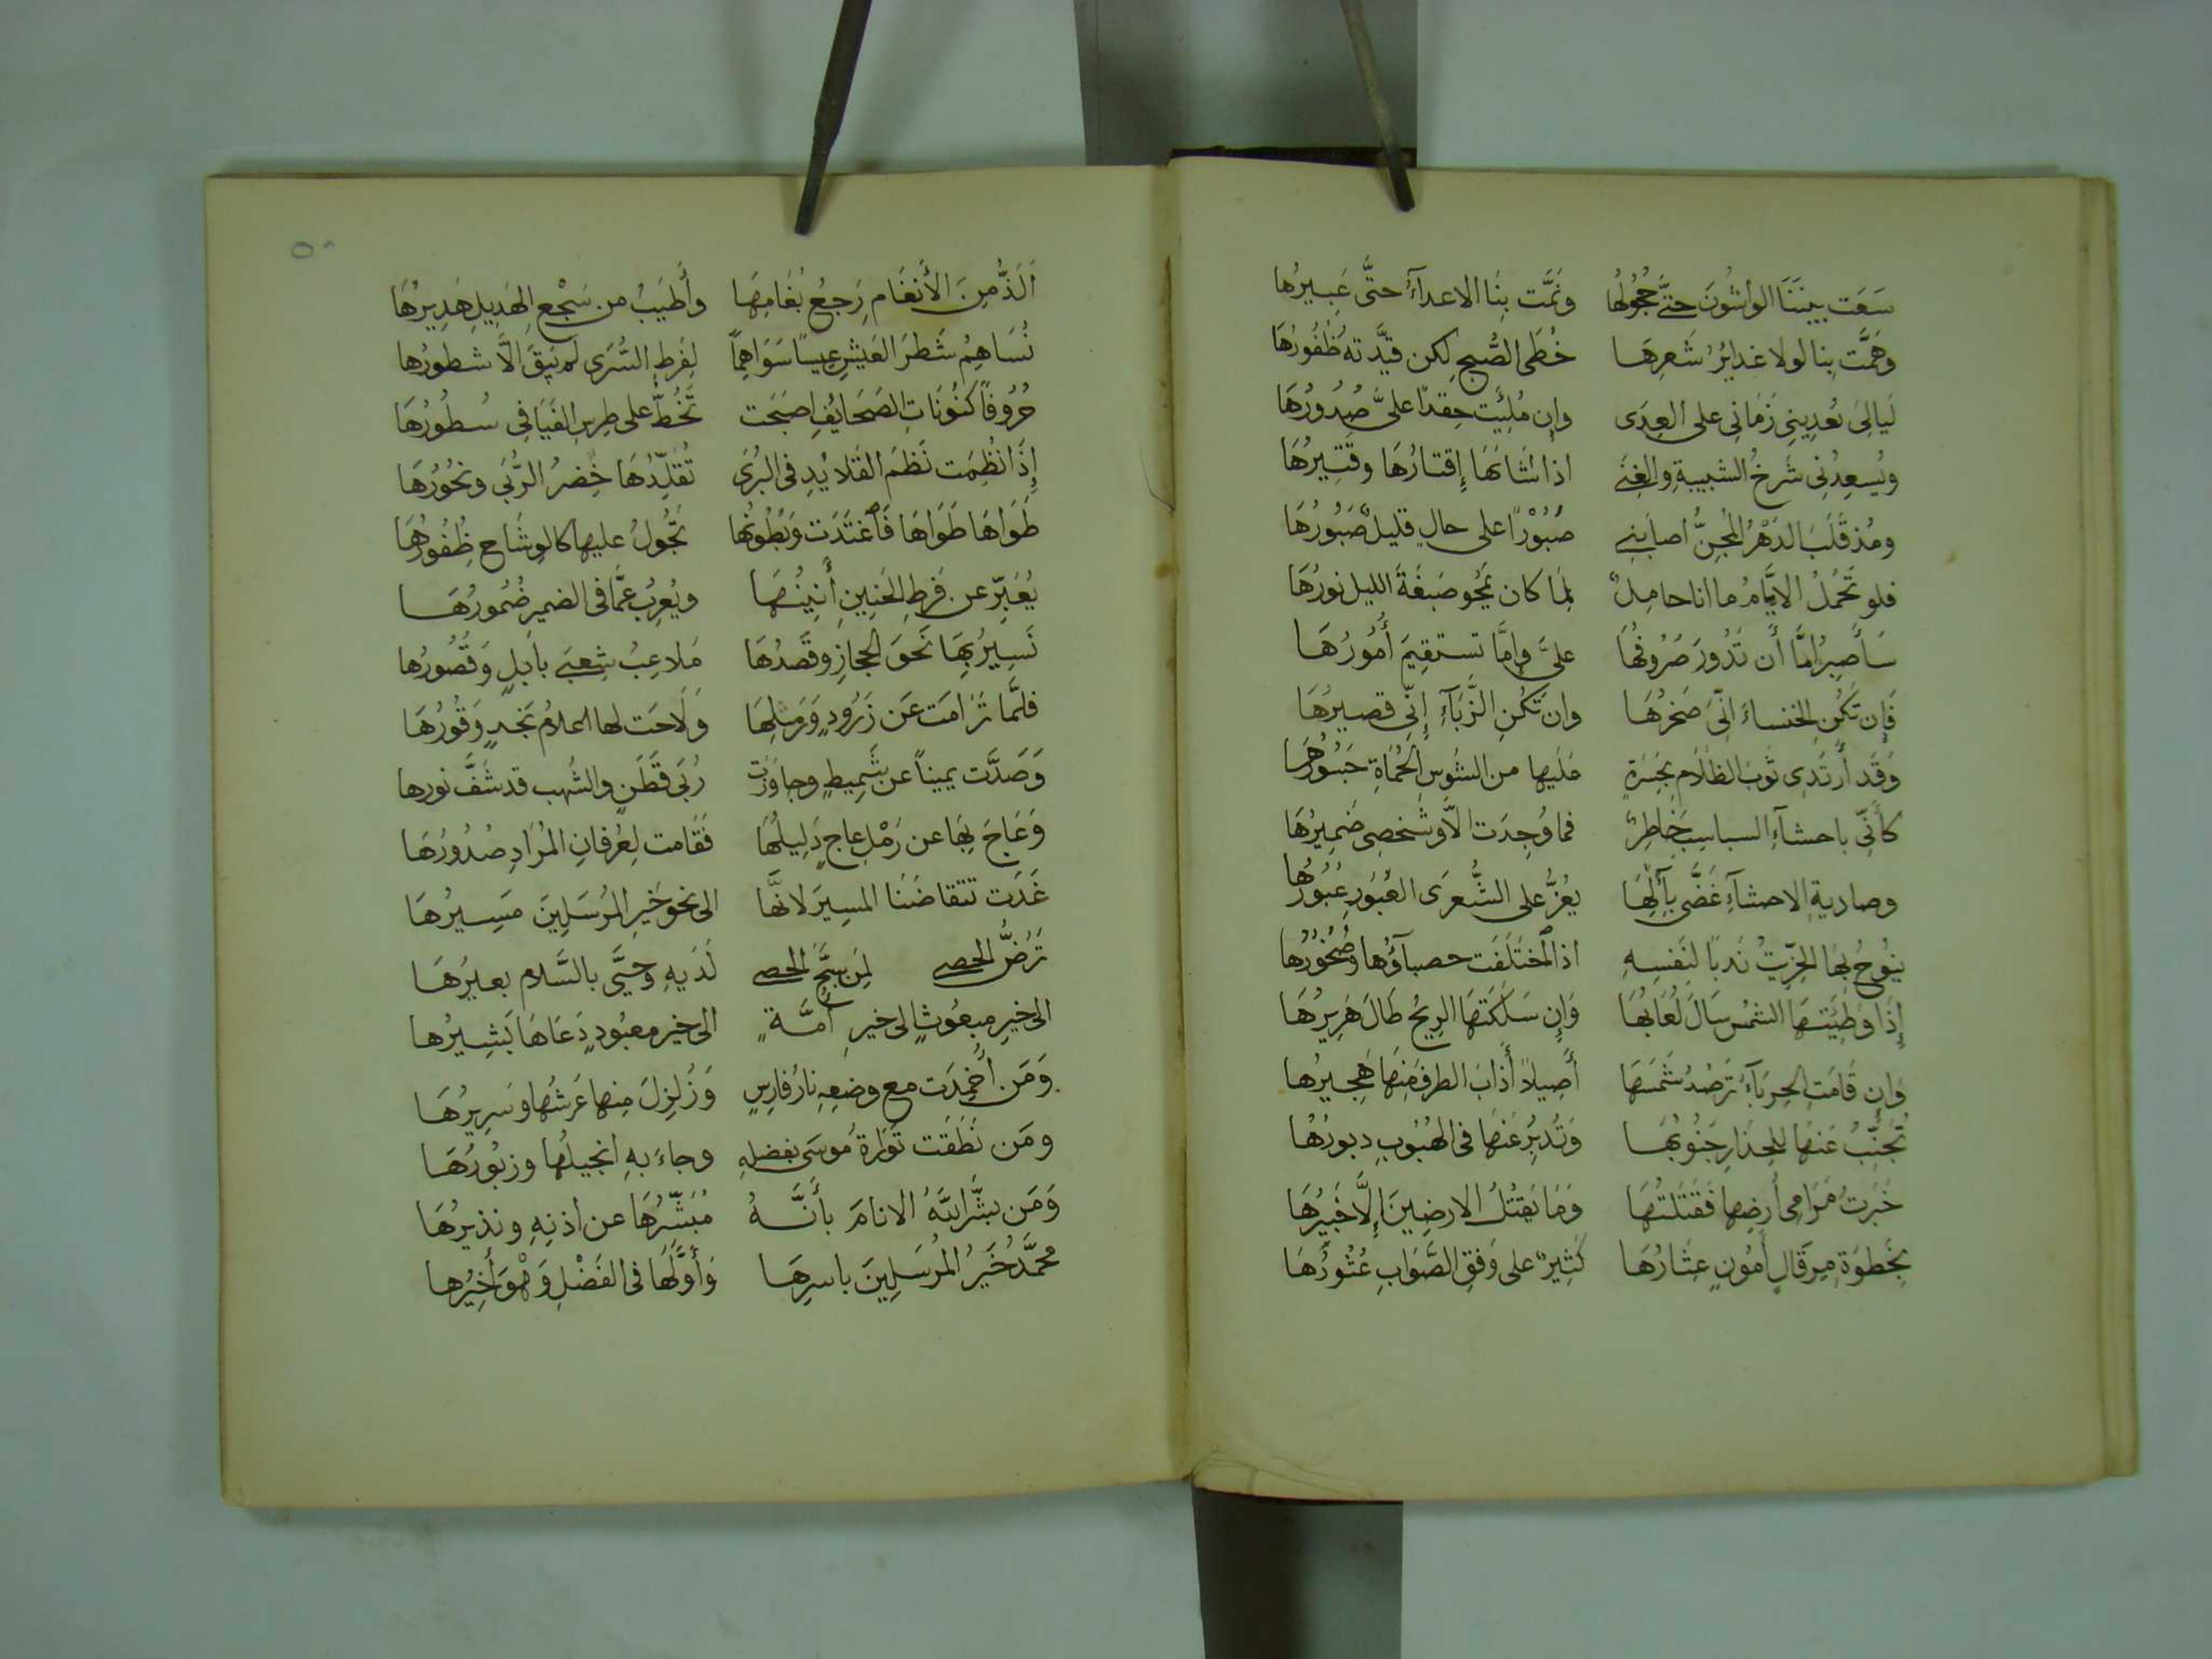 سَعَت بينَنَا الواشُونَ حتَّى حُجُولُها ونَمَّت بِنَا الاعداءُ حتَّى عَبِيرُها
وهَمَّت بِنا لولا غدايِرُ شَعرِهَا خُطَى الصُّبحِ لكن قيَّدَته ظُفُورُهَا
لَيالِىَ يُعدِينِى زَمَانِى على العِدَى وإِن مُلِئَت حِقدًا علىَّ صُدُورُهَا
ويُسعِدُنِى شَرخُ الشبيبةِ والغِنَى اذا شَانَهَا إِقتارُهَا وقَتِيرُهَا
ومُذ قَلَبَ الدَهرُ المِجَنَّ اصابَنِى صَبُورًا على حالٍ قليلٌ صَبُورُهَا
فلو تَحمُلُ الايَّامُ ما انا حامِلٌ لَمَا كان يَمحُو صَبغَةَ الليل نورُهَا
سَأَصبِرُ امَّا أَن تَدُورَ صَرُوفُهَا علىَّ وإِمَّا تستقِيمَ أُمُورُهَا
فَإِن تَكُنِ الخنساءَ انِّى صَخرُهَا وان تَكُنِ الزَّبَآءِ إِنِّى قصيرُهَا
وَقَد أَرتَدِى ثَوبَ الظلَامِ بِجَسرَةٍ عَليها من الشُوسِ الحُمَاةِ جَسُورُهَا
كأَنِّى باحشآءِ السباسِبِ خَاطِرٌ فما وُجِدَت الَّا وشَخصِى ضَمِيرُهَا
وصاديةِ الاحشآءِ غَضَّى بِآلِهَا يعُزُّ على الشُّعرَى العَبُورِ عُبُورُهَا
ينُوحُ بِهَا الخِرِّيتُ نَدبًا لنَفسِهِ اذا اختَلَفَت حصبآؤُها وصُخُورُهَا
إِذَا وَطِئَتهَا الشمسُ سَالَ لُعَابُهَا وَإِن سَلَكَتهَا الرِيحُ طَالَ هَرِيرُهَا
وإِن قَامَتِ الحِربَآءُ تَرصُدُ شَمسَهَا أَصِيلاً أَذَابَ الطرفَ مِنهَا هَجِيرُها
تُجَنِّبُ عَنهَا لِلحِذَارِ جَنُوبُهَا وَتُدبِرُ عَنهَا فى الهُبُوبِ دبورُهُا
خَبَرتُ مَرَامِى أَرضِها فَقَتَلتُهَا وَمَا يَقتُلُ الارضِينَ إِلَّا خَبِيرُهَا
بِخَطوَةِ مِرقَالٍ أَمُونٍ عِثَارُهَا كَثِيرٌ على وَفقِ الصَّوَابِ عُثُورُهَا
٥٠
اَلَذُّ مِنَ الأَنغَامِ رَجعُ بُغَامِهَا وأَطيَبُ من سَجْعِ الهَدِيلِ هَدِيرُهَا
نُسَاهِمُ شَطرَ العَيشِ عِيسًا سَوَاهِمًا لِفَرطِ السُّرَى لم يَبقَ الَّا شطورُها
حُرُوفًا كنُونَاتِ الصَحَايُفِ اصبَحَت تُخُطُّ على طِرسِ الفَيَافِى سُطُورُهَا
إِذَا نُظِمَت نَظمَ القَلايُدِ فى البُرَى تُقَلِّدُهَا خُضرُ الرُّبَى ونحُورُهَا
طَوَاهَا طَوَاهَا فَاغتَدَت وَبُطُونُهَا تَجُولُ عليها كالوِشَاحِ ظُفُورُهَا
يُعَبِّرُ عن فَرطِ الحَنِينِ أَنِينُهَا ويُعرِبُ عَمَّا فى الضميرِ ضُمُورُهَا
نَسِيرُ بِهَا نَحوَ الحِجازِ وقَصدُهَا مَلاعِبُ شِعبَى بابِلٍ وَقُصُورُها
فلَمَّا تَرَامَت عَن زَرُودٍ وَرَملِهَا وَلَاحَت لها اعلامُ نَجدٍ وَقُورُهَا
وَصَدَّت يميناً عن شَمِيطٍ وجاوَزَت رُبَى قَطَنٍ والشُهب قد شَفَّ نورها
وَعَاجَ بِهَا عن رَمْلِ عاجٍ دَلِيلُهَا فَقَامت لِعُرفانِ المُرَادِ صُدُورُهَا
غَدَت تتقاضَنَا المسِيرَ لانَّهَا الى نحوِ خَيرِ المُرسَلِينَ مَسِيرُهَا
تَرُضُّ الحصى لمَن سَبَّحَ الحصى لَدَيهِ وحَيَّى بالسَّلام بعيرُهَا
الى خيرِ مبعُوثٍ الى خيرِ أُمَّةٍ الى خيرِ معبُودٍ دَعَاهَا بَشِيرُها
وَمَن أُخمِدَت مع وضعِهِ نارُ فارِسٍ وَزُلزِلَ مِنها عَرشُها وسَرِيرُهَا
ومَن نَطَقَت تَورَاةُ مُوسَى بفضلِهِ وجاءَ بهِ انجيلُها وزبُورُهَا
وَمَن بشَّرَ اللهُ الانامَ بأَنَّهُ مُبَشِّرُهَا عن اذنِهِ ونذيرُهَا
محمَّدُ خَيرُ المُرسَلِينَ باسرِهَا وأَوَّلُهَا فى الفَضْلِ وَهْوَ أَخِيرُها